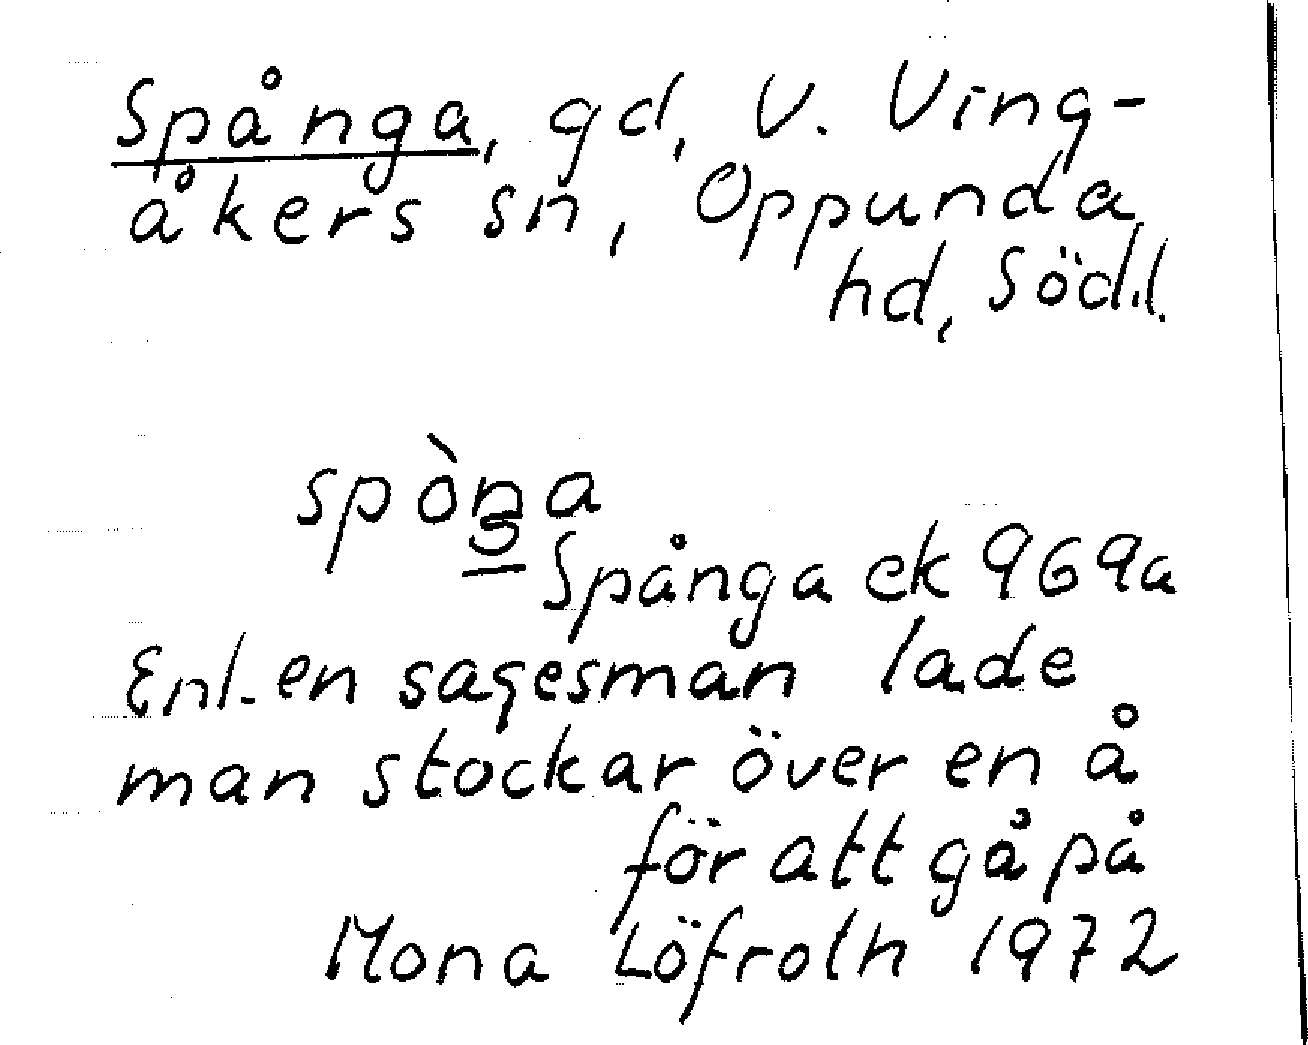 Spånga, gd, V. Ving-
åkers sn, Oppunda
hd, Södl.
spòŋa
Spånga ek 969a
Enl. en sagesman lade
man stockar över en å
för att gå på
Mona Löfroth 1972